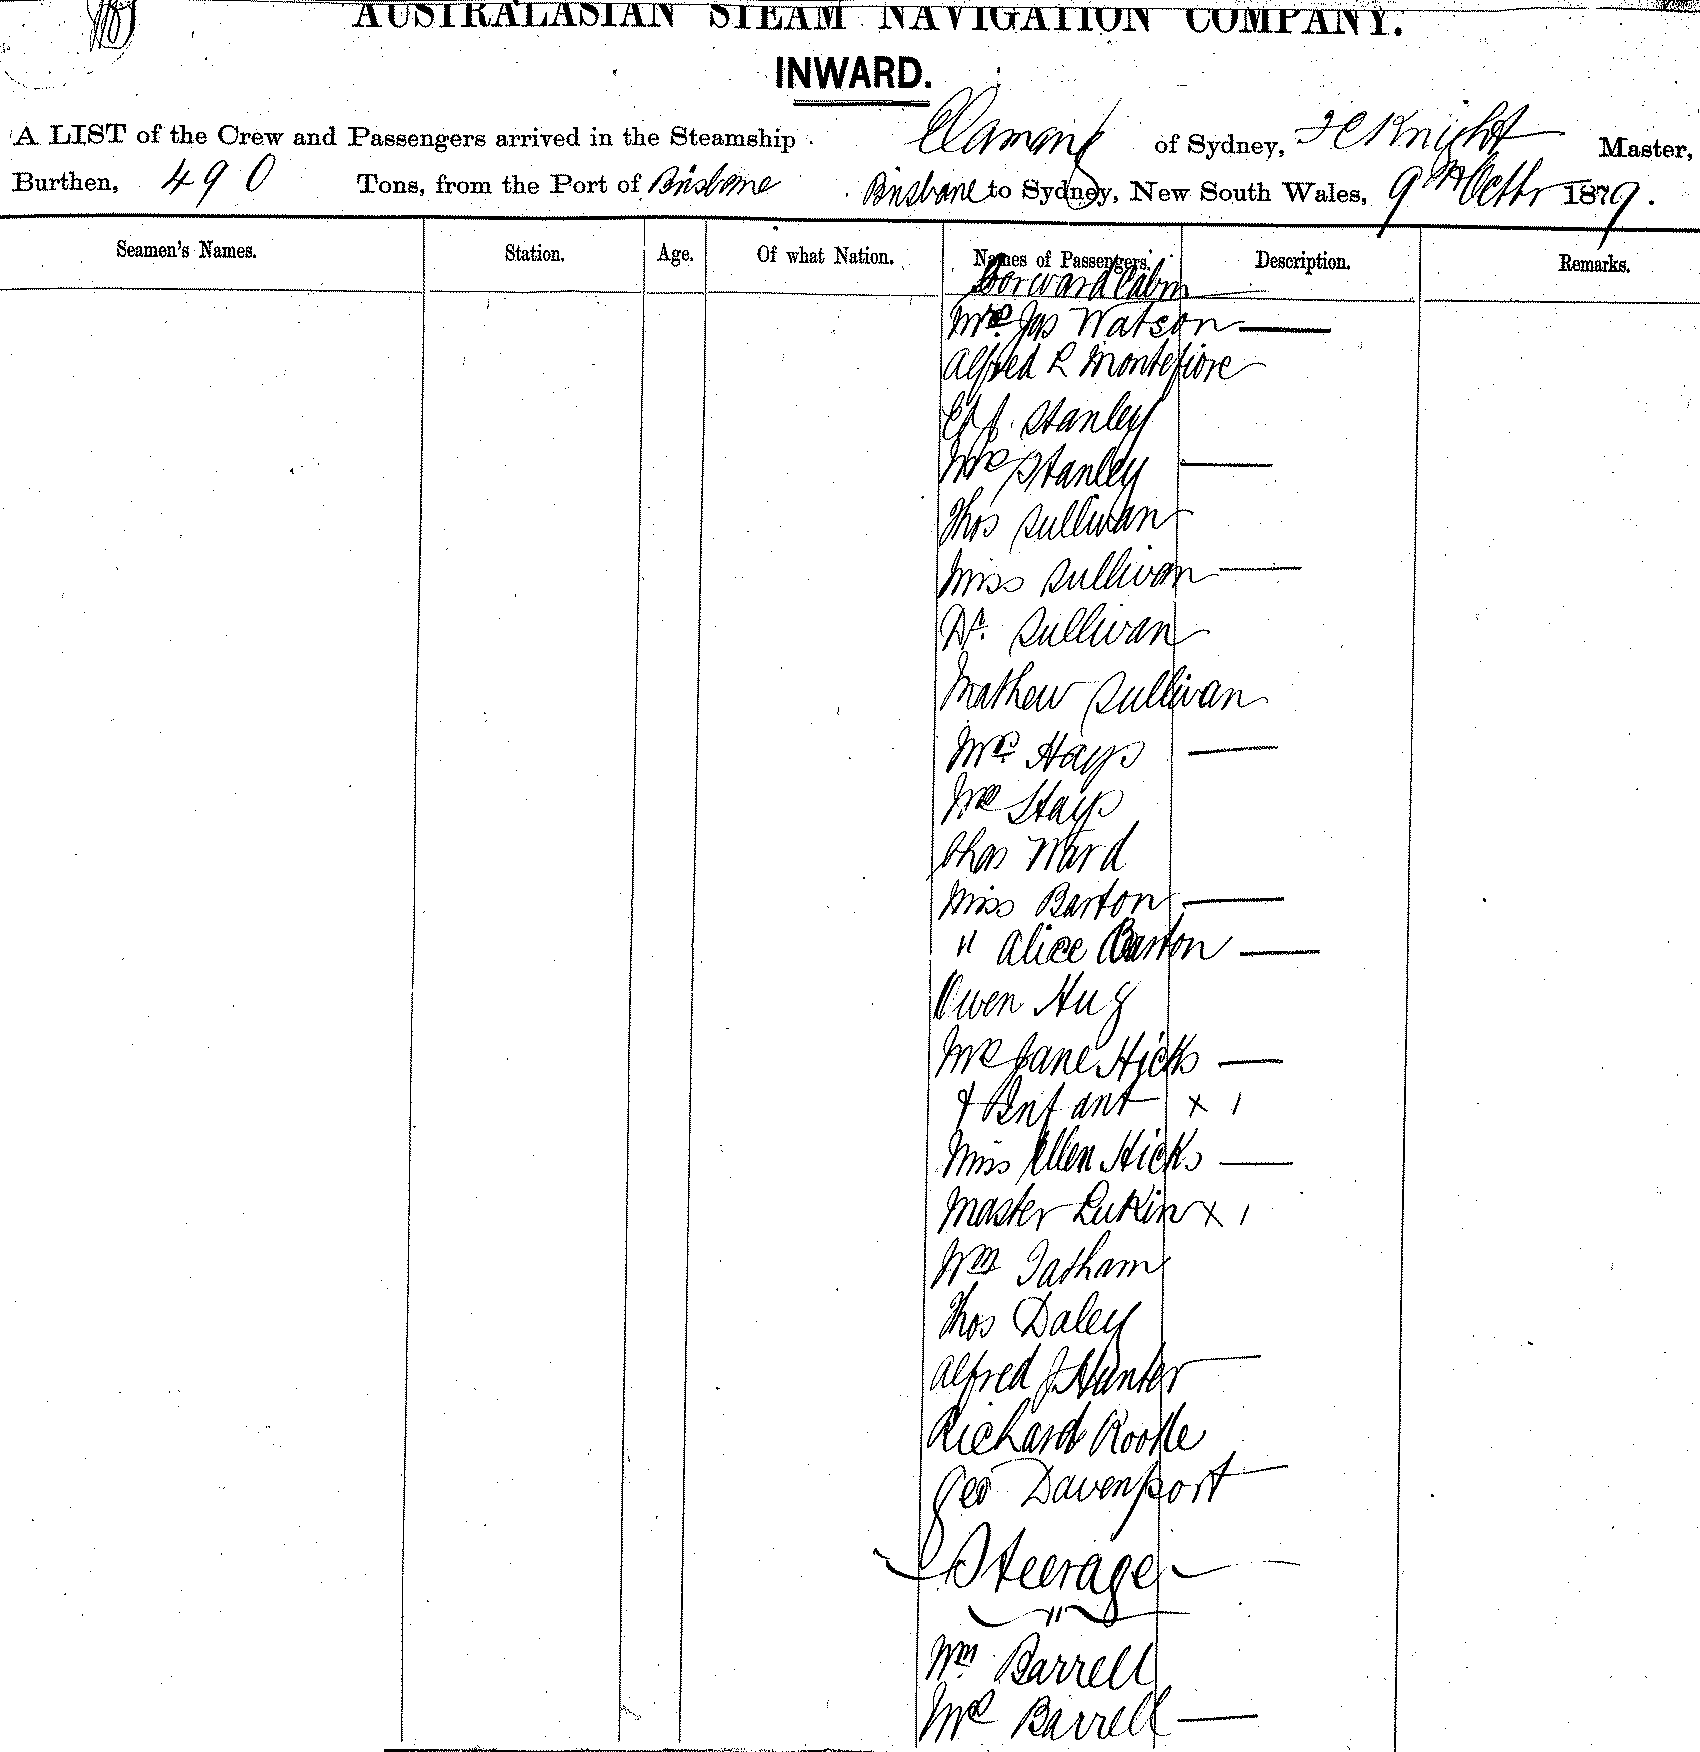 AUSTRALASIAN STEAM NAVIGATION COMPANY.
INWARD.
A LIST of the Crew and Passengers arrived in the Steamship of Sydney, Knight Master,
Burthen, 490 Tons, from the Port of Brisbane Brisbane to Sydney, New South Wales, 9th Octbr 1879.
Seamen's Names. Station. Age. Of what Nation. Names of Passengers. Description. Remarks.
Forward Cabin
Mrs. Jas Watson
Alfred L Montefiore
Stanley
Mrs Stanley
Thos Sullivan
Miss Sullivan
Sullivan
Mathew Sullivan
Mrs Hays
Hays
Chas Ward
Miss Barton
" Alice Barton
Owen Hug
Mrs Jane Hicks
& Infant x 1
Miss Ellen Hicks
Master Lukin x 1
Wm Tatham
Thos Daley
Alfred J. Hunter
Richard
Geo Davenport
Steerage
"
Wm Barrell
Mrs Barrell